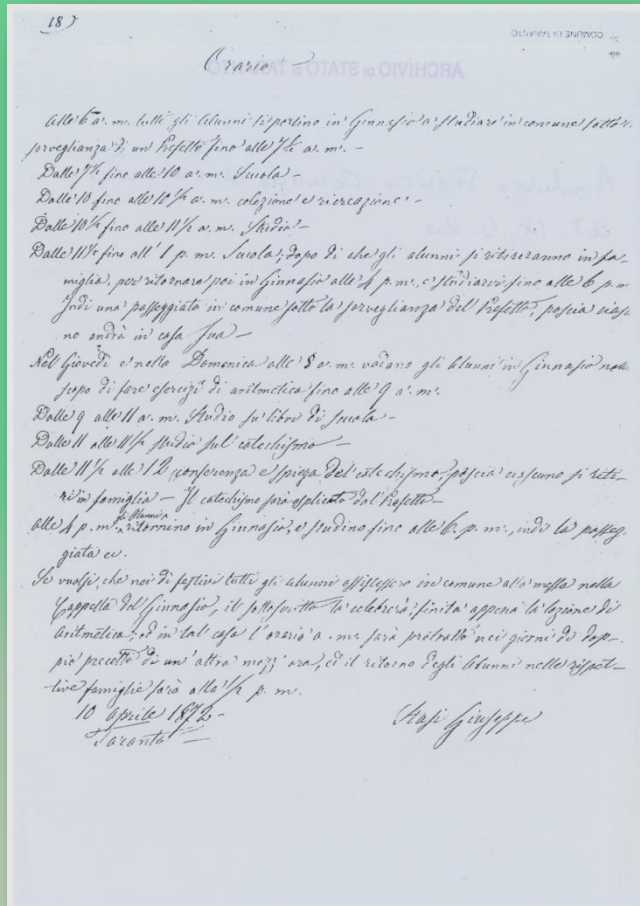 18)
COMUNE DI TARANTO
ARCHIVIO DI STATO DI TARANTO
Orario –
Alle 6 a. m. tutti gli Alunni si portino in Ginnasio a studiare in comune sotto la
sorveglianza di un Prefetto fino alle 7½ a. m. –
Dalle 7½ fino alle 10 a. m. Scuola –
Dalle 10 fino alle 10½ a. m. colezione e ricreazione –
Dalle 10½ fino alle 11½ a. m. Studio –
Dalle 11½ fino all' 1 p. m. Scuola; dopo di che gli alunni si ritireranno in fa-
miglia, per ritornare poi in Ginnasio alle 4 p. m. e studiarvi fino alle 6 p. m
Indi una passeggiata in comune sotto la sorveglianza del Prefetto, poscia ciascu
no andrà in casa sua –
Nel Giovedì e nella Domenica alle 8 a. m. vadano gli Alunni in Ginnasio nello
scopo di fare esercizi di aritmetica fino alle 9 a. m.
Dalle 9 alle 11 a. m. Studio su' libri di scuola –
Dalle 11 alle 11½ studio sul catechismo –
Dalle 11½ alle 12 conferenza e spiega del catechismo, poscia ciascuno si riti-
ri in famiglia – Il catechismo sarà esplicato dal Prefetto –
alle 4 p. m. gli Alunni ritornino in Ginnasio, e studino fino alle 6 p. m., indi la passeg-
giata ec.
Se vuolsi, che nei dì festivi tutti gli alunni assistessero in comune alla messa nella
Cappella del Ginnasio, il sottoscritto la celebrerà, finita appena la lezione di
aritmetica; ed in tal caso l'orario a. m. sarà protratto nei giorni di dop-
pio precetto di un'altra mezz'ora, ed il ritorno degli Alunni nelle rispet-
tive famiglie sarà alla ½ p. m.
10 Aprile 1872 –
Taranto
Stasi Giuseppe